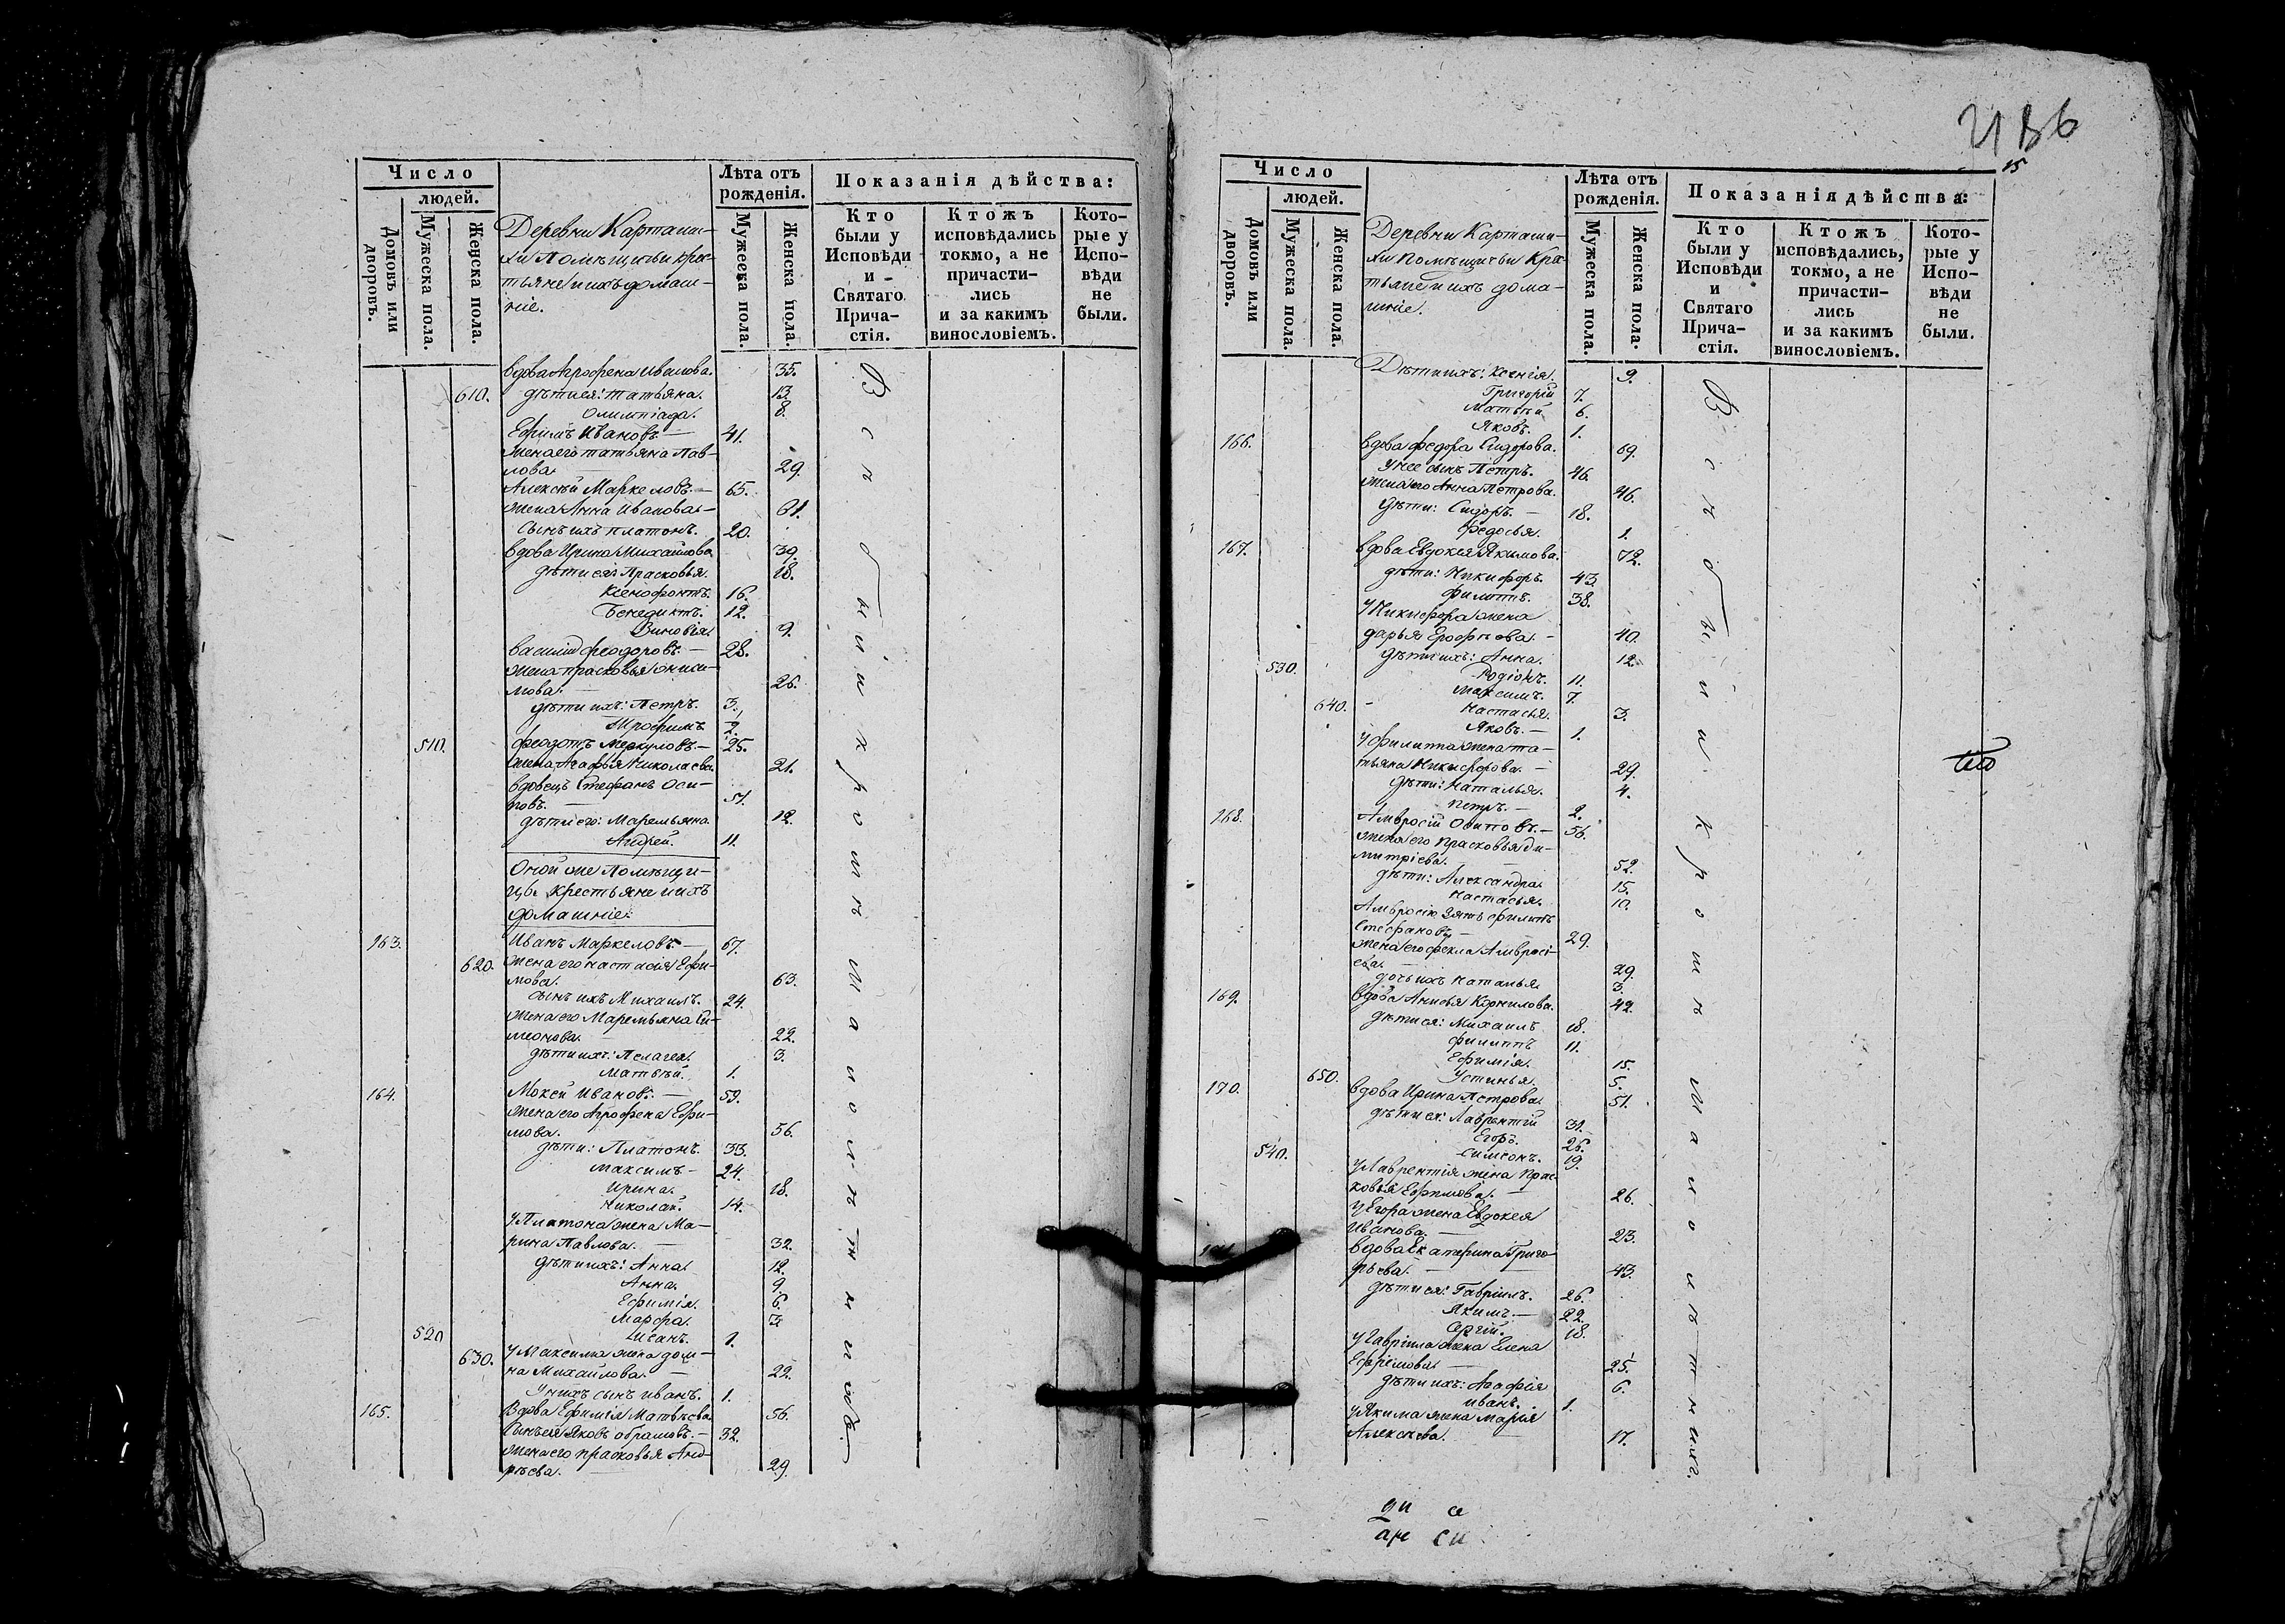 Число
людей.
Домовъ или дворовъ.
Мужеска пола.
Женска пола.
Деревни Карташи-
хи Помѣщичьи крес-
тьяне и ихъ домаш-
ніе.
Лѣта отъ рожденія.
Мужеска пола.
Женска пола.
Показанія дѣйства:
Кто были у Исповѣди и Святаго Прича- стія.
Ктожъ исповѣдались токмо, а не причасти- лись и за какимъ винословіемъ.
Кото- рые у Испо- вѣди не были.
вдова Агрофена Иванова. 35.
610. дѣти ея: Татьяна. 13.
Олимпіада. 8.
Ефимъ Ивановъ. 41.
жена его Татьяна Пав-
лова. 29.
Алексѣй Маркеловъ. 65.
жена Анна Иванова. 61.
сынъ ихъ Платонъ. 20.
вдова Ирина Михайлова 39.
дѣти ея: Прасковья. 18.
Ксенофонтъ. 16.
Бенедиктъ. 12.
Зиновія. 9.
Василій Феодоровъ. 28.
жена Прасковья Ониси-
мова. 26.
дѣти ихъ: Петръ. 3.
Трофимъ 2.
510. Феодотъ Меркуловъ. 25.
жена Агафья Николаева 21.
вдовецъ Стефанъ Оси-
повъ. 51.
дѣти его: Маремьяна 12.
Андрей. 11.
Оной же Помѣщи-
цы крестьяне и ихъ
домашніе:
163. Иванъ Маркеловъ. 67.
620. жена его Настасія Ефи-
мова. 63.
сынъ ихъ Михаилъ. 24.
жена его Маремьяна Си-
меонова. 22.
дѣти ихъ: Пелагея. 3.
Матвѣй. 1.
164. Мокей Ивановъ. 59.
жена его Агрофена Ефи-
мова. 56.
дѣти: Платонъ. 33.
Максимъ 24.
Ирина. 18.
Николай. 14.
у Платона жена Ма-
рина Павлова. 32.
дѣти ихъ: Анна 12.
Анна. 9.
Ефимія. 6.
Марфа. 3.
520 Иванъ. 1.
630. у Максима жена Дом-
на Михайлова. 22.
У нихъ сынъ Иванъ. 1.
165. Вдова Ефимія Матвѣева 56.
Сынъ ея Яковъ Обрамовъ. 32.
жена его Прасковья Анд-
рѣева. 29.
Всѣ обніи кромѣ малолѣтнихъ.
15
Число
людей.
Домовъ или дворовъ.
Мужеска пола.
Женска пола.
Деревни Карташи-
хи Помѣщичьи Кре-
стьяне и ихъ дома-
шніе.
Лѣта отъ рожденія.
Мужеска пола.
Женска пола.
Показанія дѣйства:
Кто были у Исповѣди и Святаго Прича- стія.
Ктожъ исповѣдались, токмо, а не причасти- лись и за какимъ винословіемъ.
Кото- рые у Испо- вѣди не были.
Дѣти ихъ: Ксенія. 9.
Григорій 7.
Матвѣй 6.
Яковъ. 1.
166. вдова Федора Сидорова. 69.
у нее сынъ Петръ. 46.
жена его Анна Петрова. 46.
дѣти: Сидоръ. 18.
Федосья. 1.
167. вдова Евдокея Якимова. 72.
дѣти: Никифоръ. 43.
Филиппъ. 38.
у Никифора жена
Дарья Ерофѣева. 40.
дѣти ихъ: Анна. 12.
530. Родіонъ. 11.
Максимъ. 7.
640. Настасья. 3.
Яковъ. 1.
у Филиппа жена Та-
тьяна Никифорова. 29.
дѣти: Наталья. 4.
Петръ. 2.
168. Амвросій Осиповъ. 56.
жена его Прасковья Ди-
митріева. 52.
дѣти: Александра. 15.
Настасья. 10.
Амвросію зять Филипъ
Стефановъ 29.
жена его Фекла Амвросі-
ева. 29.
дочь ихъ Наталья 3.
169. Вдова Анисья Корнилова. 42.
дѣти ея: Михаилъ 18.
Филиппъ 11.
Ефимія. 15.
650. Устинья. 5.
170. Вдова Ирина Петрова. 51.
дѣти ея: Лаврентій 31.
Егоръ. 26.
540. Симеонъ. 19.
у Лаврентія жена Прас-
ковья Ефимова. 26.
у Егора жена Евдокея
Иванова. 23.
вдова Екатерина Григо-
рьева. 43.
дѣти ея: Гавріилъ. 26.
Якимъ. 22.
Сергій. 18.
у Гавріила жена Елена
Ефремова 25.
дѣти ихъ: Агафія 6.
Иванъ. 1.
у Якима жена Марія
Алексѣева. 17.
Всѣ обніи кромѣ малолѣтнихъ.